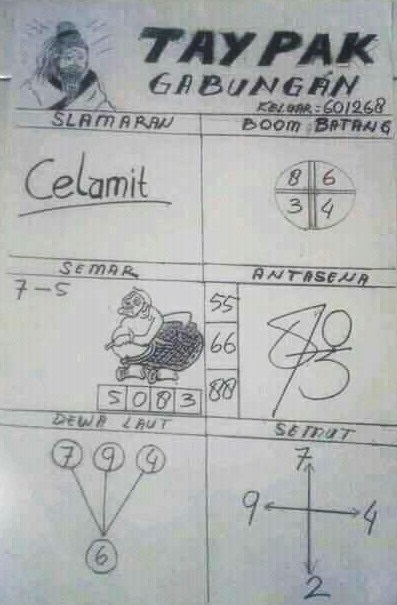 TAYPAK
GABUNGAN
KELUAR: 601268
SLAMARAN
BOOM BATANG
Celamit
8 6
3 4
SEMAR
ANTASENA
7-5
55
66
88
5 0 8 3
DEWA LAUT
SEMUT
7 9 4
6
7
9 4
2